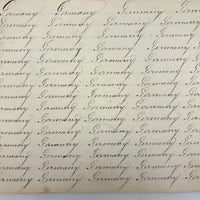 Germany Germany Germany Germ
Germany Germany Germany Germany
Germany Germany Germany Germany
Germany Germany Germany Germany
Germany Germany Germany Germany Germ
Germany Germany Germany Germany Germ
Germany Germany Germany Germany Germ
Germany Germany Germany Germany Germ
Germany Germany Germany Germany Germ
Germany Germany Germany Germany Germ
Germany Germany Germany Germany Germ
Germany Germany Germany Germany Germ
Germany Germany Germany Germany Germ
Germany Germany Germany Germany Germ